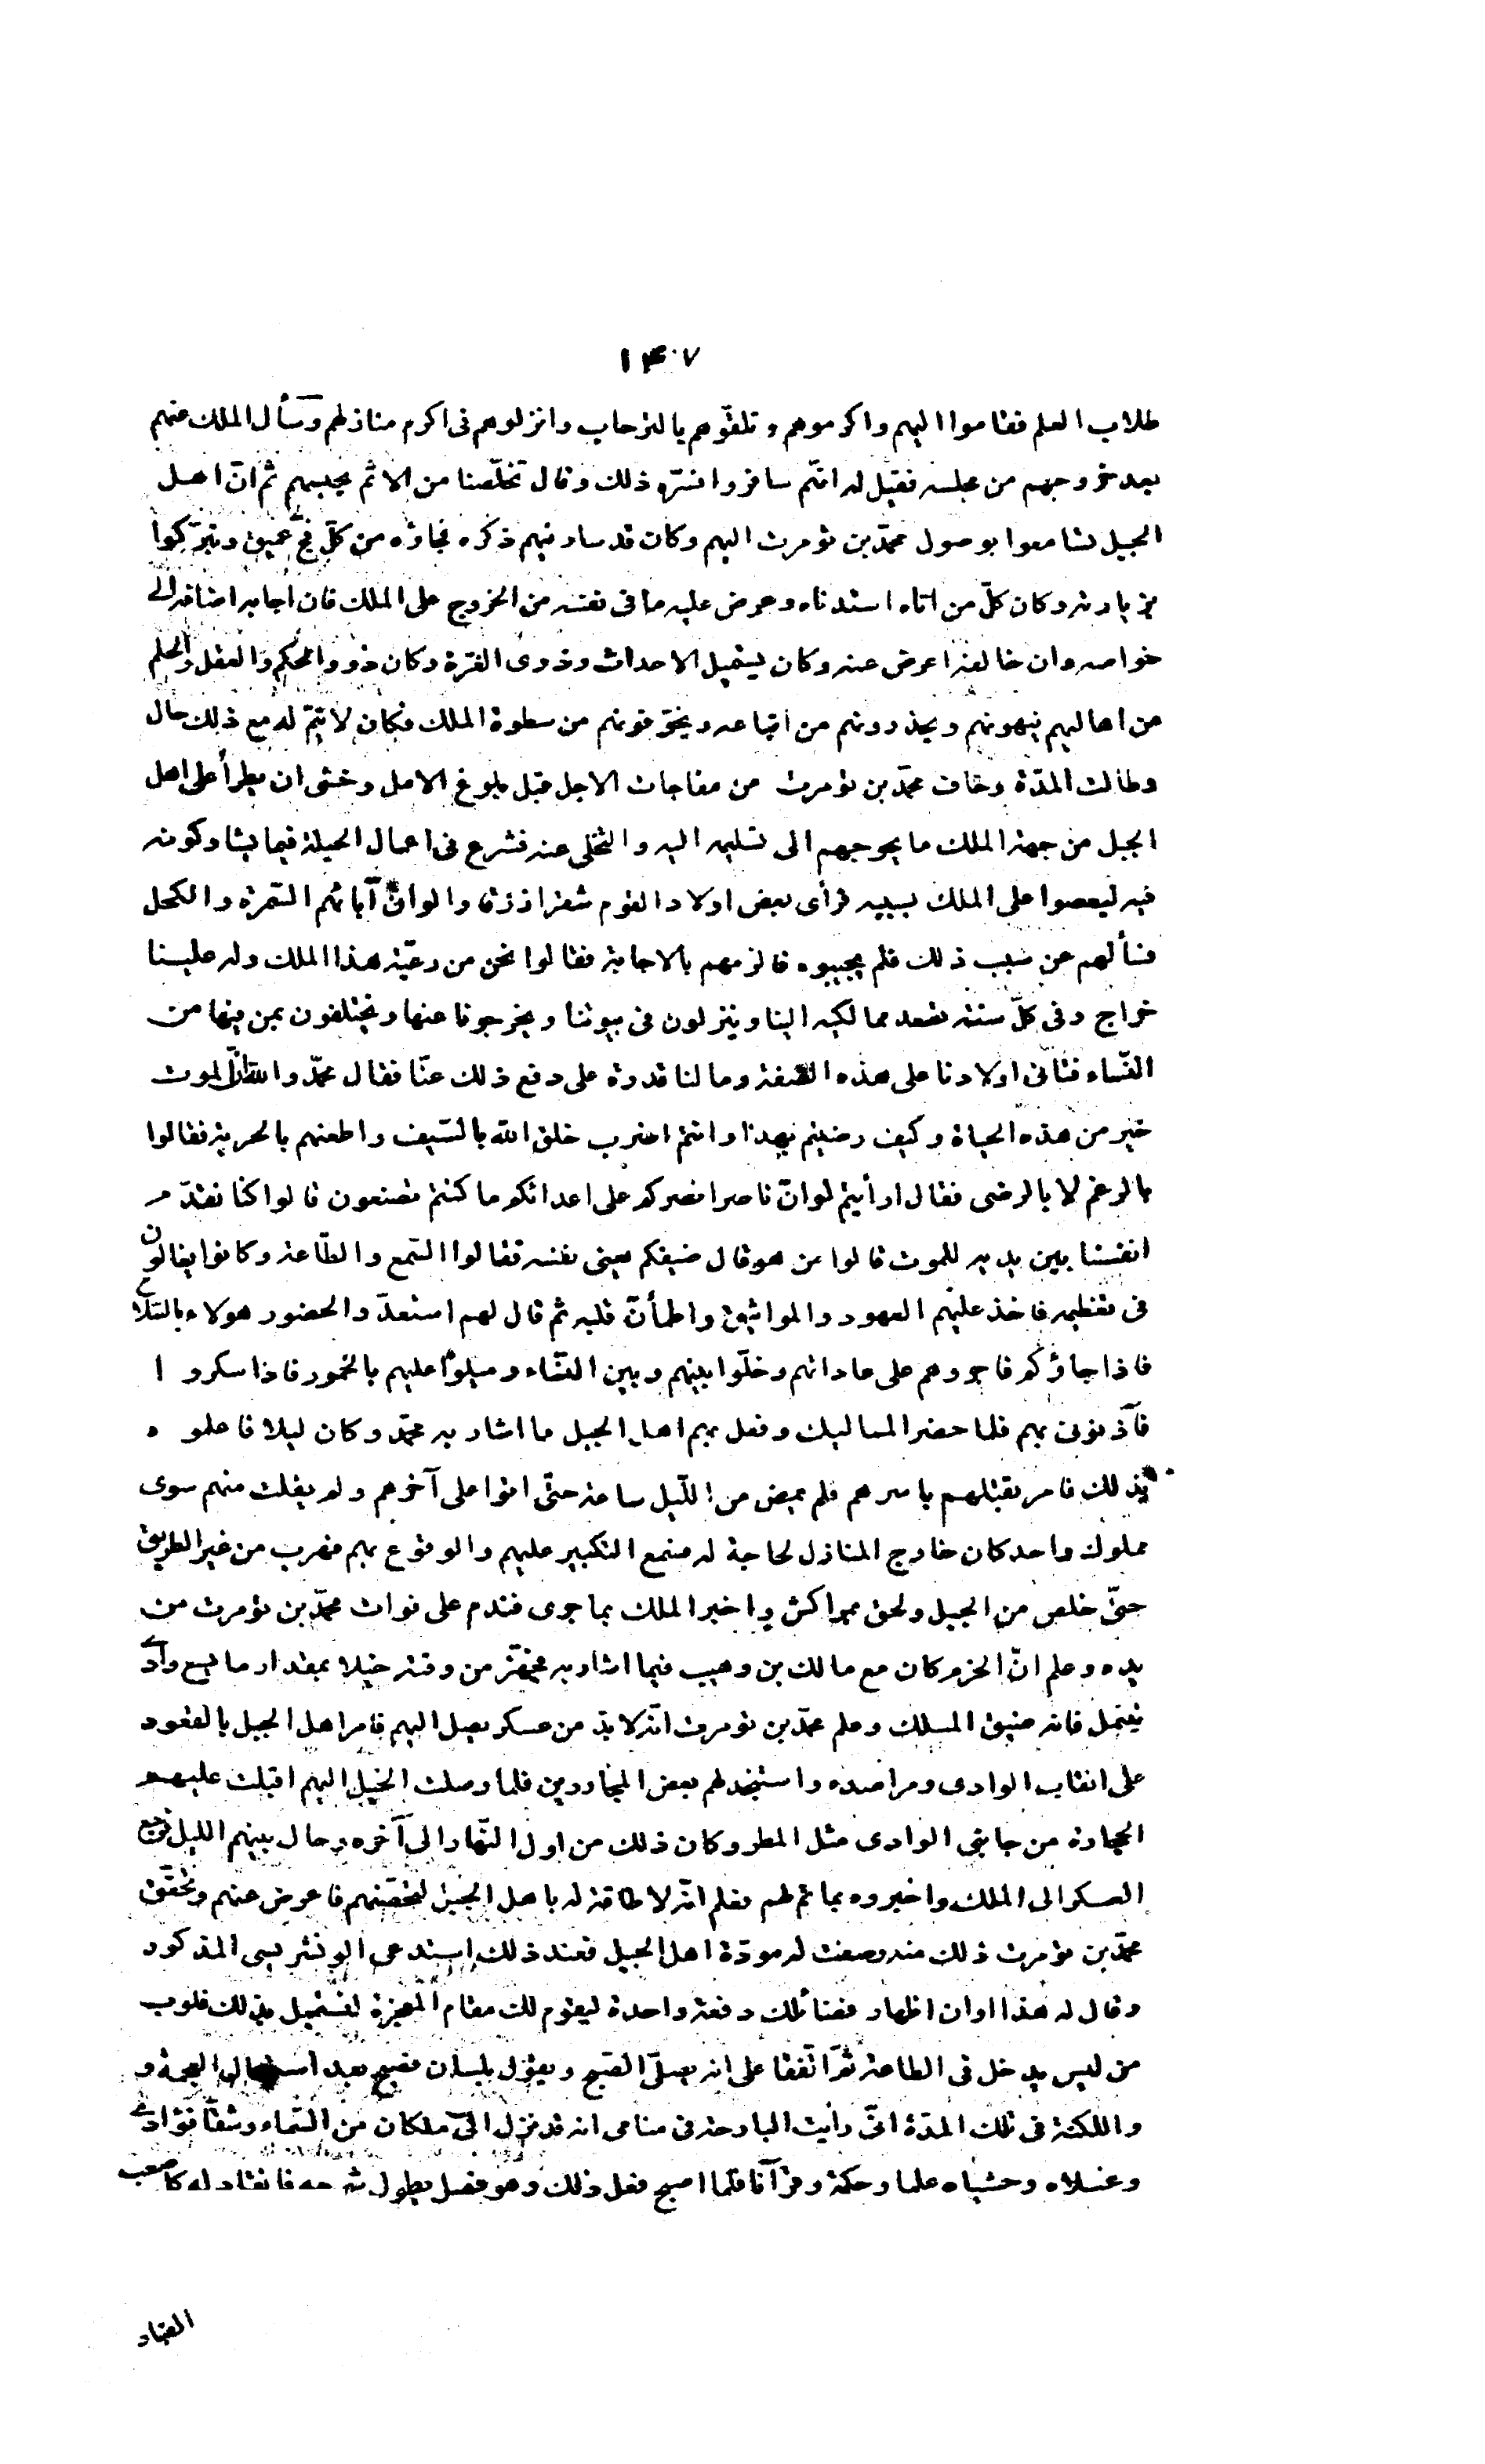 ١۴٠٧
طلاب العلم فقاموا اليهم واكرموهم وتلقّوهم بالترحاب وانزلوهم فى اكرم منازلهم وسأل الملك عنهم
بعد خروجهم من مجلسه فقيل له انّهم سافروا فسرّه ذلك وقال تخلّصنا من الاثم بحبسهم ثم انّ اهل
الجبل تسامعوا بوصول محمّد بن تومرت اليهم وكان قد سار فيهم ذكره فجاؤه من كلّ فجّ عميق وتبرّكوا
بزيارته وكان كلّ من اتاه استدناه وعرض عليه ما فى نفسه من الخروج على الملك فان اجابه اضافه الى
خواصه وان خالفه اعرض عنه وكان يستميل الاحداث وذوى الغرّة وكان ذووا الحكم والعقل والحلم
من اهاليهم ينهونهم ويحذرونهم من اتباعه ويخوّفونهم من سطوة الملك فكان لا يتمّ له مع ذلك حال
وطالت المدّة وخاف محمّد بن تومرت من مفاجات الاجل قبل بلوغ الامل وخشى ان يطرأ على اهل
الجبل من جهة الملك ما يحوجهم الى تسليمه اليه والتخلى عنه فشرع فى اعمال الحيلة فيما يشاركونه
فيه ليعصوا على الملك بسببه فرأى بعض اولاد القوم شقرا زرقا والوان آبائهم السّمرة والكحل
فسألهم عن سبب ذلك فلم يجيبوه فالزمهم بالاجابة فقالوا نحن من رعيّة هذا الملك وله علينا
خراج وفى كلّ سنة تصعد مماليكه الينا وينزلون فى بيوتنا ويخرجونا عنها ويختلفون بمن فيها من
النّساء فتأتى اولادنا على هذه الصّفة وما لنا قدرة على دفع ذلك عنّا فقال محمّد والله انّ الموت
خير من هذه الحياة وكيف رضيتم بهذا وانتم اضرب خلق الله بالسّيف واطعنهم بالحربة فقالوا
بالرغم لا بالرضى فقال ارأيتم لو انّ ناصرا نصركم على اعدائكم ما كنتم تصنعون قالوا كنا نقدّم
انفسنا بين يديه للموت قالوا من هو قال ضيفكم يعنى نفسه فقالوا السّمع والطّاعة وكانوا يغالون
فى تعظيمه فاخذ عليهم العهود والمواثيق واطمأنّ قلبه ثم قال لهم استعدّوا لحضور هولاء بالسّلاح
فاذا جاؤكم فاجروهم على عاداتهم وخلّوا بينهم وبين النّساء وميلوا عليهم بالخمور فاذا سكروا
فآذنونى بهم فلما حضر المماليك وفعل بهم اهل الجبل ما اشار به محمّد وكان ليلا فاعلموه
بذلك فامر بقتلهم باسرهم فلم يمض من اللّيل ساعة حتّى اتوا على آخرهم ولم يفلت منهم سوى
مملوك واحد كان خارج المنازل لحاجة له فسمع التكبير عليهم والوقوع بهم فهرب من غير الطريق
حتّى خلص من الجبل ولحق بمراكش واخبر الملك بما جرى فندم على فوات محمّد بن تومرت من
يده وعلم انّ الحزم كان مع مالك بن وهيب فيما اشار به فجهّز من وقته خيلا بمقدار ما يسع وادى
تينمل فانه ضيق المسلك وعلم محمّد بن تومرت انّه لا بدّ من عسكر يصل اليهم فامر اهل الجبل بالقعود
على انقاب الوادى ومراصده واستنجد لهم بعض المجاورين فلما وصلت الخيل اليهم اقبلت عليهم
الحجارة من جانبى الوادى مثل المطر وكان ذلك من اول النّهار الى آخره وحال بينهم الليل فرجع
العسكر الى الملك واخبروه بما تم لهم فعلم انّه لا طاقة له باهل الجبل لتحصّنهم فاعرض عنهم وتحقّق
محمّد بن تومرت ذلك منه وصفت له مودّة اهل الجبل فعند ذلك استدعى الونشريسى المذكور
وقال له هذا اوان اظهار فضائلك دفعة واحدة ليقوم لك مقام المعجزة لنستميل بذلك قلوب
من ليس يدخل فى الطاعة ثمّ اتّفقا على انه يصلّى الصّبح ويقول بلسان فصيح بعد استعمال العجمة و
واللكنة فى تلك المدّة انّى رأيت البارحة فى منامى انه قد نزل الىّ ملكان من السّماء وشقّا فؤادى
وغسلاه وحشياه علما وحكمة وقرآنا فلمّا اصبح فعل ذلك وهو فصل يطول شرحه فانقاد له كل صعب
القياد